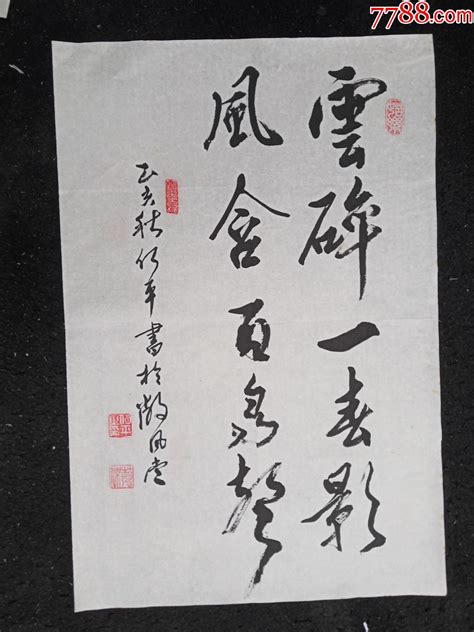 7788.com
雲碎一春影
風含百鳥聲
亥秋 平書於 風堂